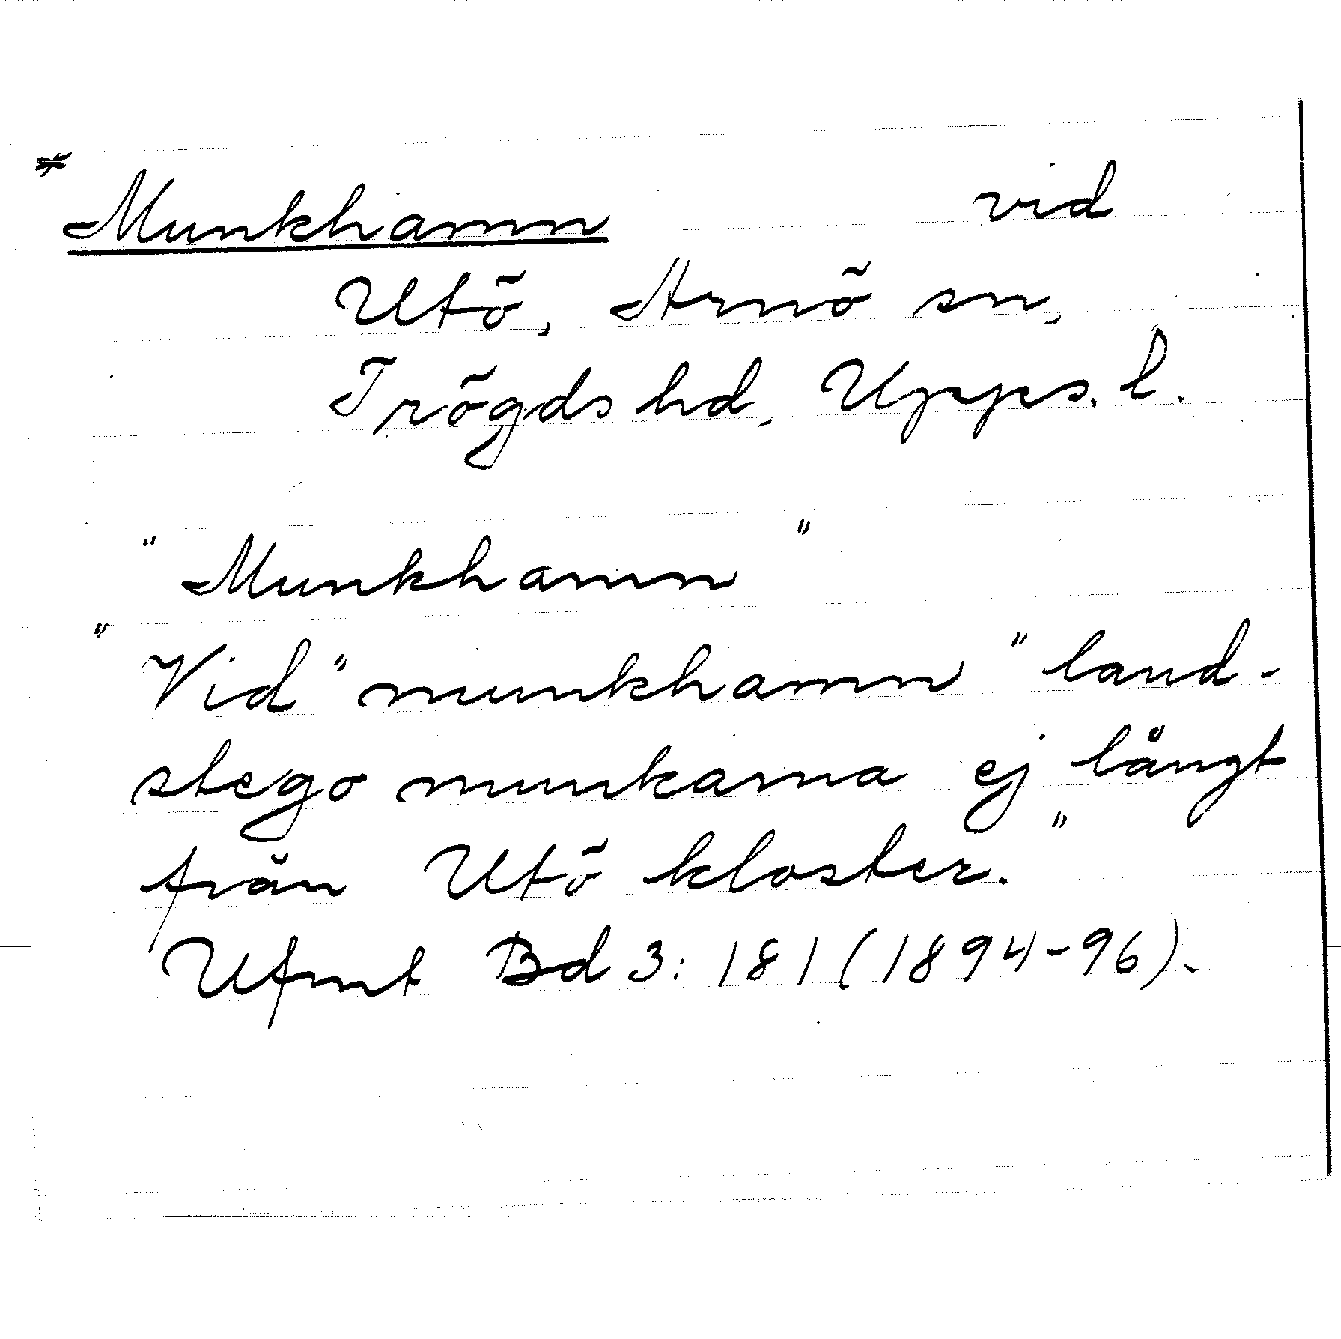 * Munkhamn vid
Utö, Arnö sn,
Trögds hd, Upps. l.
"Munkhamn"
"Vid "munkhamn" land-
stego munkarna ej långt
från Utö kloster."
Ufmt Bd 3: 181 (1894-96).